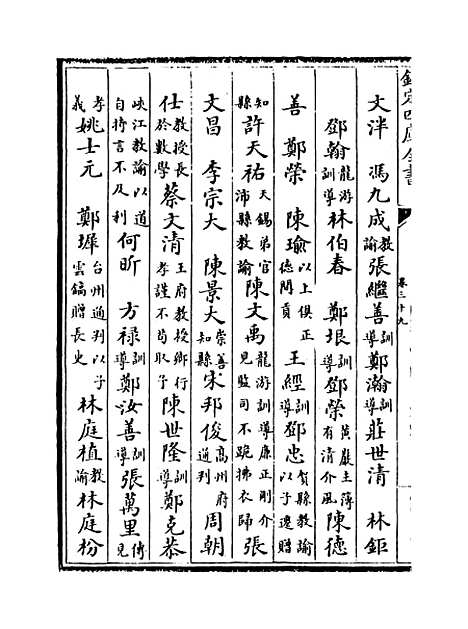 欽定四庫全書
卷三十九
文泮 馮九成教諭張繼善訓導鄭瀚訓導莊世清 林鉅
鄧翰龍游訓導林伯春 鄭垠訓導鄧榮黃巖主簿有清介風陳德
善 鄭榮 陳瑜以上俱正德間貢王經訓導鄧忠賀縣教諭以子遷贈
知縣許天祐天錫弟官沛縣教諭陳文禹龍游訓導廉正剛介見監司不跪拂衣歸張
文昌 李宗大 陳景大崇善知縣宋邦俊高州府通判周朝
仕教授長於數學蔡文清王府教授鄉行孝謹不苟取予陳世隆訓導鄭克恭
峽江教諭以道自持言不及利何昕 方祿訓導鄭汝善訓導張萬里傳見
孝義姚士元 鄭墀台州通判以子雲鎬贈長史林庭植教諭林庭枌